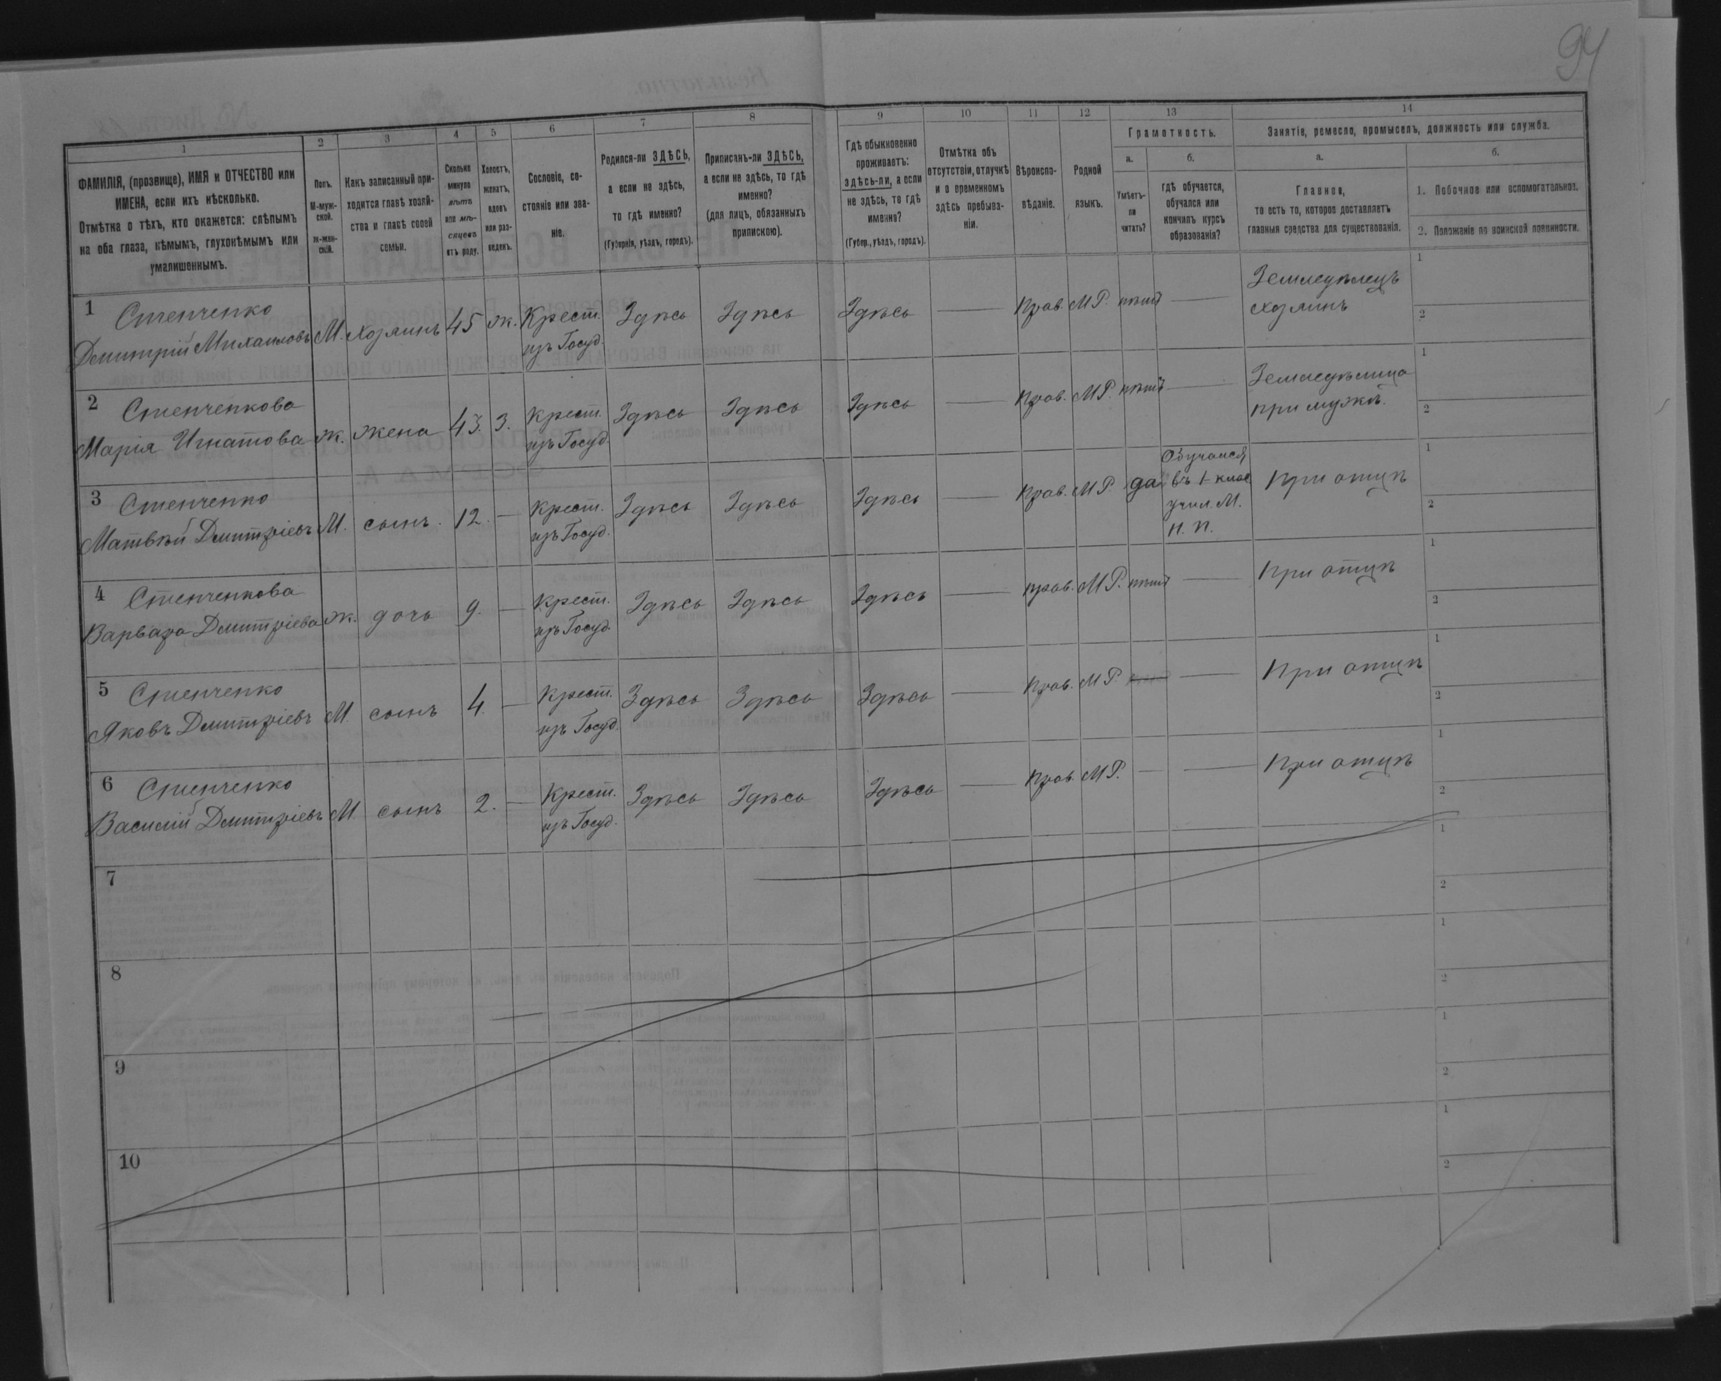 94
1 2 3 4 5 6 7 8 9 10 11 12 13 14
ФАМИЛІЯ, (прозвище), ИМЯ и ОТЧЕСТВО или
ИМЕНА, если ихъ нѣсколько.
Отмѣтка о тѣхъ, кто окажется: слѣпымъ
на оба глаза, нѣмымъ, глухонѣмымъ или
умалишеннымъ.
Полъ.
М-муж-
ской.
ж-жен-
скій.
Какъ записанный при-
ходится главѣ хозяй-
ства и главѣ своей
семьи.
Сколько
минуло
лѣтъ
или мѣ-
сяцевъ
отъ роду.
Холостъ,
женатъ,
вдовъ
или раз-
веденъ.
Сословіе, со-
стояніе или зва-
ніе.
Родился-ли ЗДѢСЬ,
а если не здѣсь,
то гдѣ именно?
(Губернія, уѣздъ, городъ).
Приписанъ-ли ЗДѢСЬ,
а если не здѣсь, то гдѣ
именно?
(для лицъ, обязанныхъ
припискою).
Гдѣ обыкновенно
проживаетъ:
здѣсь-ли, а если
не здѣсь, то гдѣ
именно?
(Губер., уѣздъ, городъ).
Отмѣтка объ
отсутствіи, отлучкѣ
и о временномъ
здѣсь пребыва-
ніи.
Вѣроиспо-
вѣданіе.
Родной
языкъ.
Грамотность.
а.
Умѣетъ-
ли
читать?
б.
гдѣ обучается,
обучался или
кончилъ курсъ
образованія?
Занятіе, ремесло, промыселъ, должность или служба.
а.
Главное,
то есть то, которое доставляетъ
главныя средства для существованія.
б.
1. Побочное или вспомогательное.
2. Положеніе по воинской повинности.
1 Стенченко
Дмитрій Михаиловъ М. хозяинъ 45 ж. Крест.
изъ Госуд. Здѣсь Здѣсь Здѣсь — Прав. М.Р. нѣтъ — Земледѣлецъ
хозяинъ
1
2
2 Стенченкова
Марія Игнатова ж. жена 43. З. Крест.
изъ Госуд. Здѣсь Здѣсь Здѣсь — Прав. М.Р. нѣтъ — Земледѣлица
при мужѣ.
1
2
3 Стенченко
Матвѣй Дмитріевъ М. сынъ. 12. — Крест.
изъ Госуд. Здѣсь Здѣсь Здѣсь — Прав. М.Р. да
Обучался
въ 1 клас
учил. М.
Н. П.
При отцѣ
1
2
4 Стенченкова
Варвара Дмитріева ж. дочь 9. — Крест.
изъ Госуд. Здѣсь Здѣсь Здѣсь — Прав. М.Р. нѣтъ — При отцѣ
1
2
5 Стенченко
Яковъ Дмитріевъ М сынъ 4. — Крест.
изъ Госуд. Здѣсь Здѣсь Здѣсь — Прав. М.Р. — При отцѣ
1
2
6 Стенченко
Василій Дмитріевъ М сынъ 2. — Крест.
изъ Госуд. Здѣсь Здѣсь Здѣсь — Прав. М.Р. — — При отцѣ
1
2
7
1
2
8
1
2
9
1
2
10
1
2